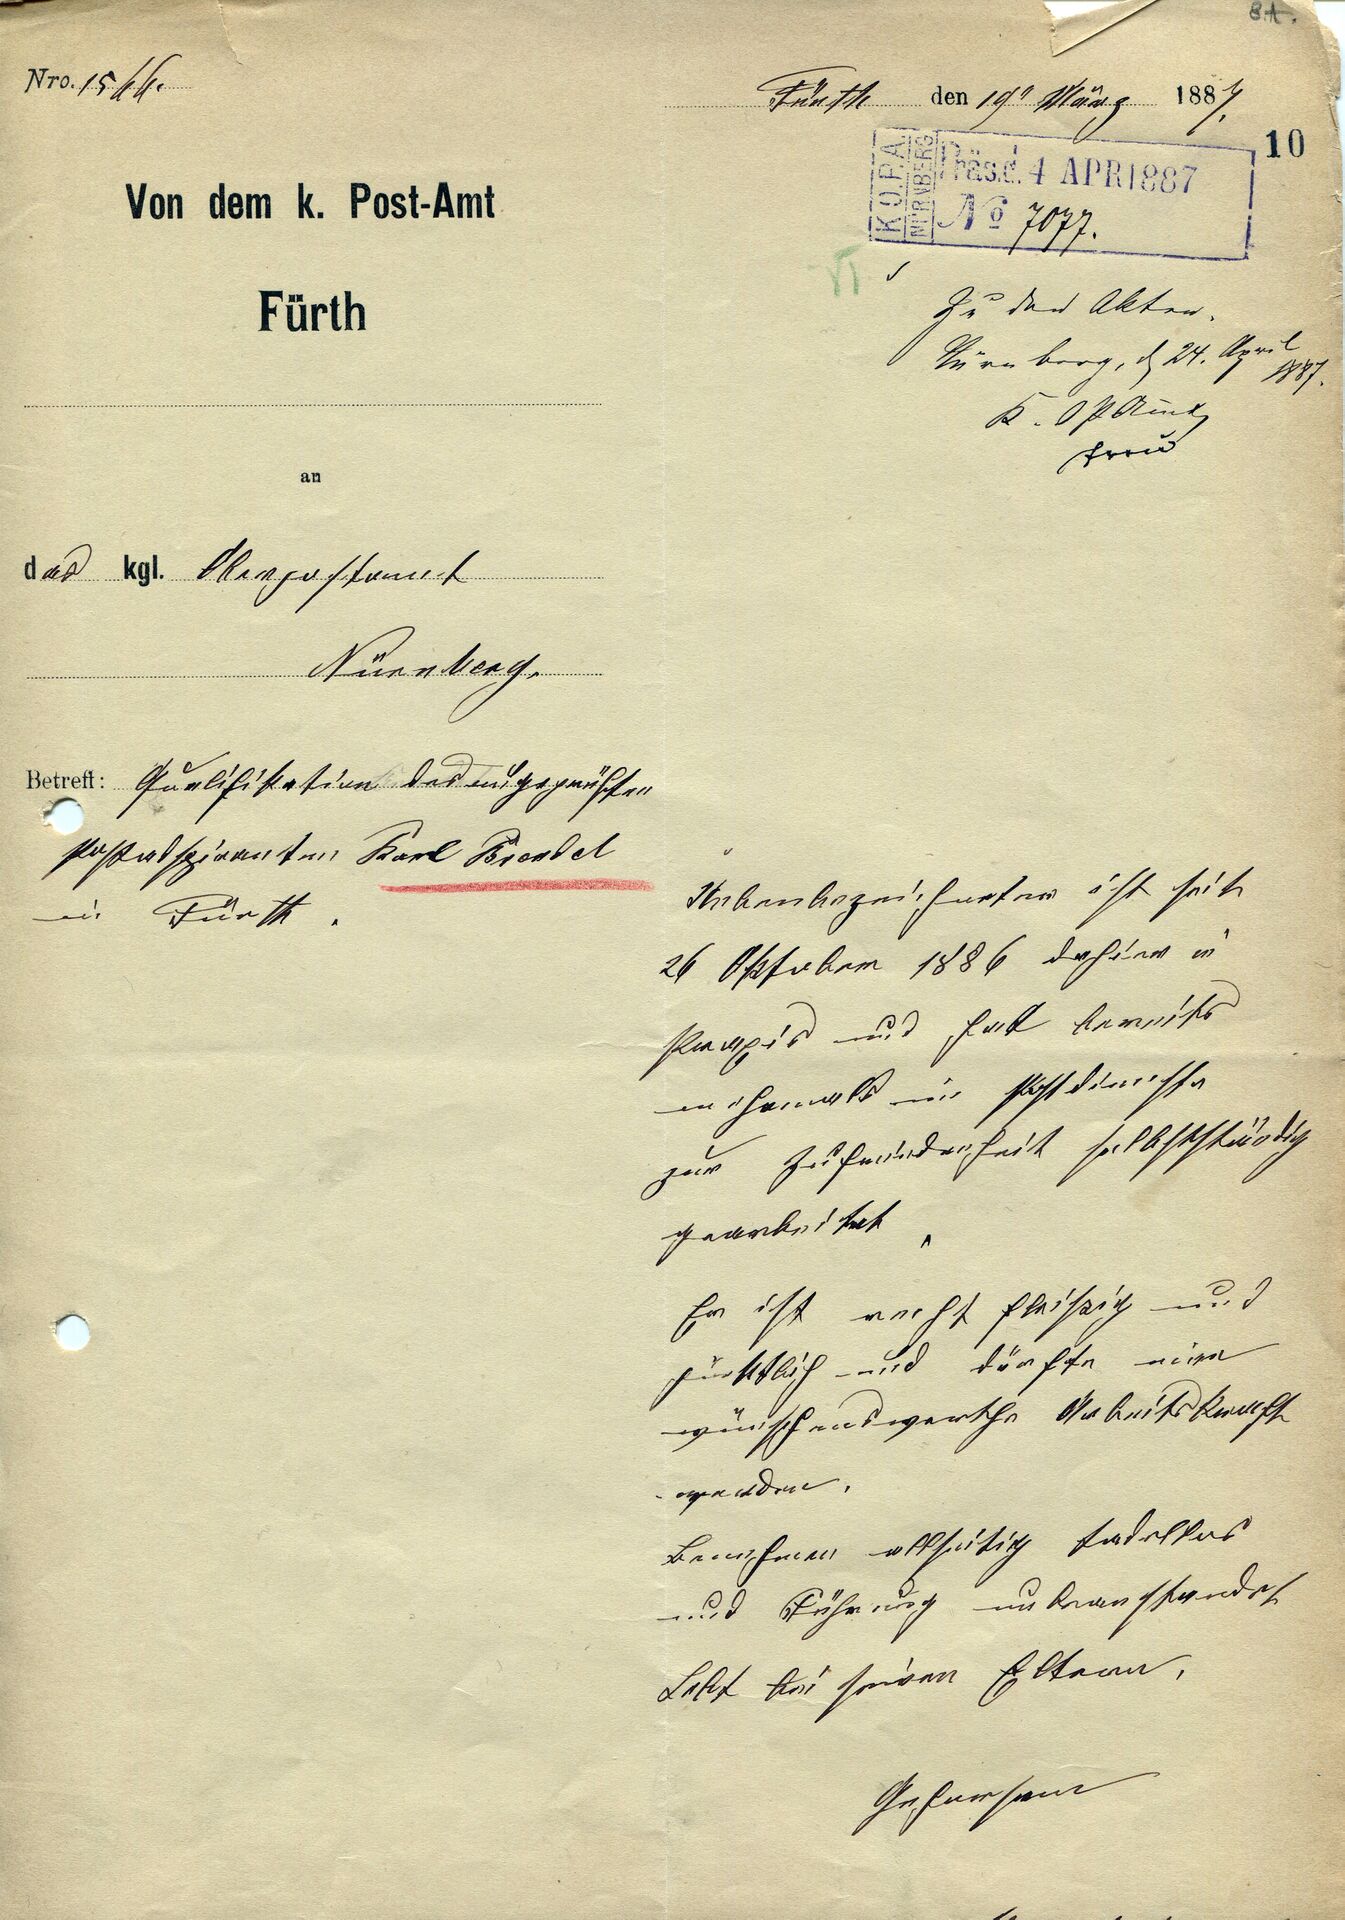 81.
Nro. 1566.
Fürth den 19" März 1887.
10
K.O.P.A.
NÜRNBERG
Präs.d. 4 APR 1887
No 7077.
Zu den Akten.
Nürnberg, d 24. April
1887.
K. OPAmt
Von dem k. Post-Amt
Fürth
an
das kgl. Oberpostamt
Nürnberg.
Betreff: Qualifikation des
Postadspiranten Karl Brendel
in Fürth.
Nebenbezeichneter ist seit
26 Oktober 1886 dahier in
Praxis und hat bereits
mehrmals im Postdienste
zur Zufriedenheit selbstständig
gearbeitet.
Er ist recht fleiszig und
pünktlich und dürfte eine
wünschenswerthe Arbeitskraft
werden.
Benehmen allseitig tadellos
und Führung unbeanstandet
Lebt bei seinen Eltern.
Gehorsam